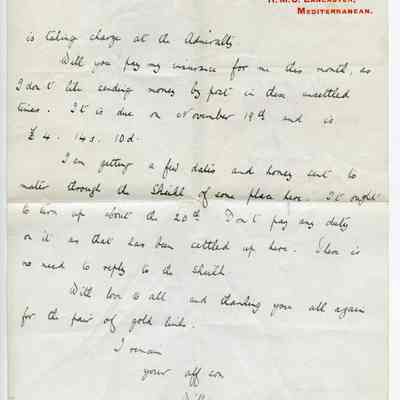 H.M.S. LANCASTER,
MEDITERRANEAN.
is taking charge at the Admiralty
Will you pay my insurance for me this month, as
I don't like sending money by post in these unsettled
times. It is due on November 19th and is
£4. 14s. 10d.
I am getting a few dates and honey sent to
mater through the Sheikh of some place here. It ought
to turn up about the 20th. Don't pay any duty
on it as that has been settled up here. There is
no need to reply to the Sheikh.
With love to all and thanking you all again
for the pair of gold links.
I remain
your aff son